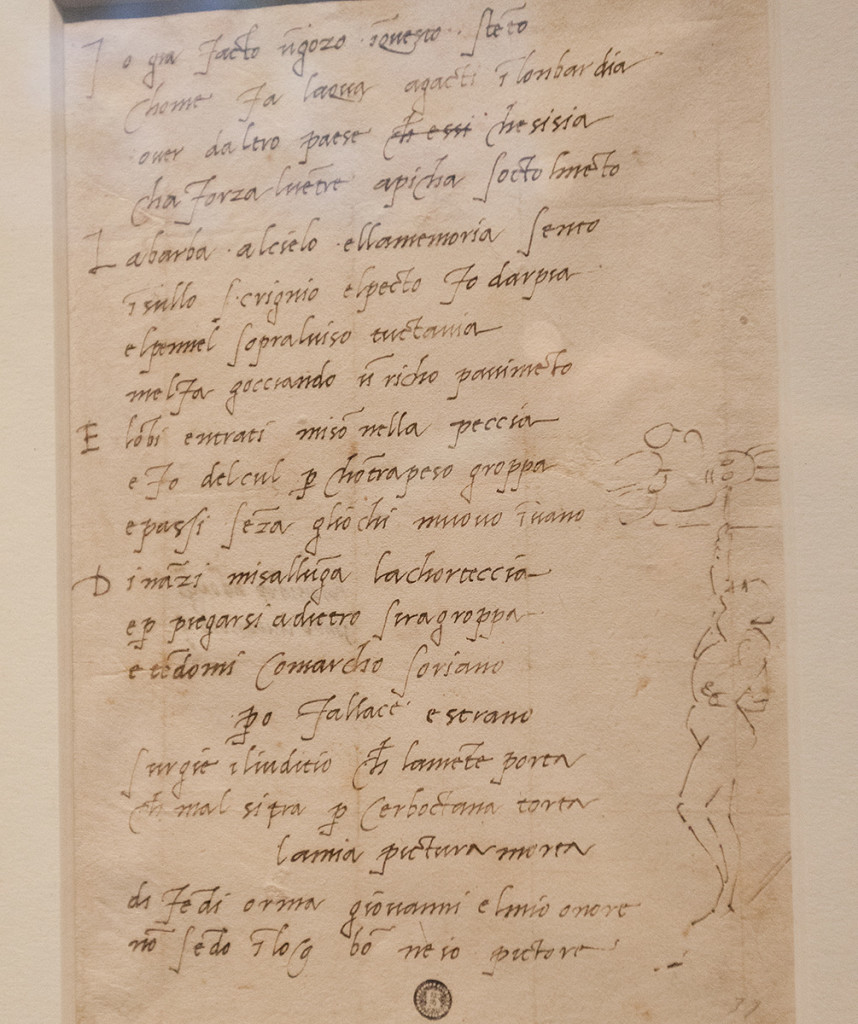 I o gia facto ūgozo ī questo stēto
chome fa laqua agacti ī lonbardia
over daltro paese ch essi che sisia
cha forza lvētre apicha socto lmēto
L abarba alcielo ellamemoria sento
ī sullo scrignio elpecto fo darpia
elpennel sopralviso tuctavia
melfa gocciando ū richo pavimēto
E lōbi entrati miso nella peccia
e fo delcul p chōtrapeso groppa
e passi sēza gliochi muovo īvano
D ināzi misallūga lachorteccia
e p piegarsi adietro siragroppa
e tēdomi comarcho soriano
po fallace e strano
surgie iliuditio ch lamēte porta
ch mal sitra p cerboctana torta
lamia pictura morta
difēdi orma giovanni elmio onore
nō sēdo ī log bō nè io pictore